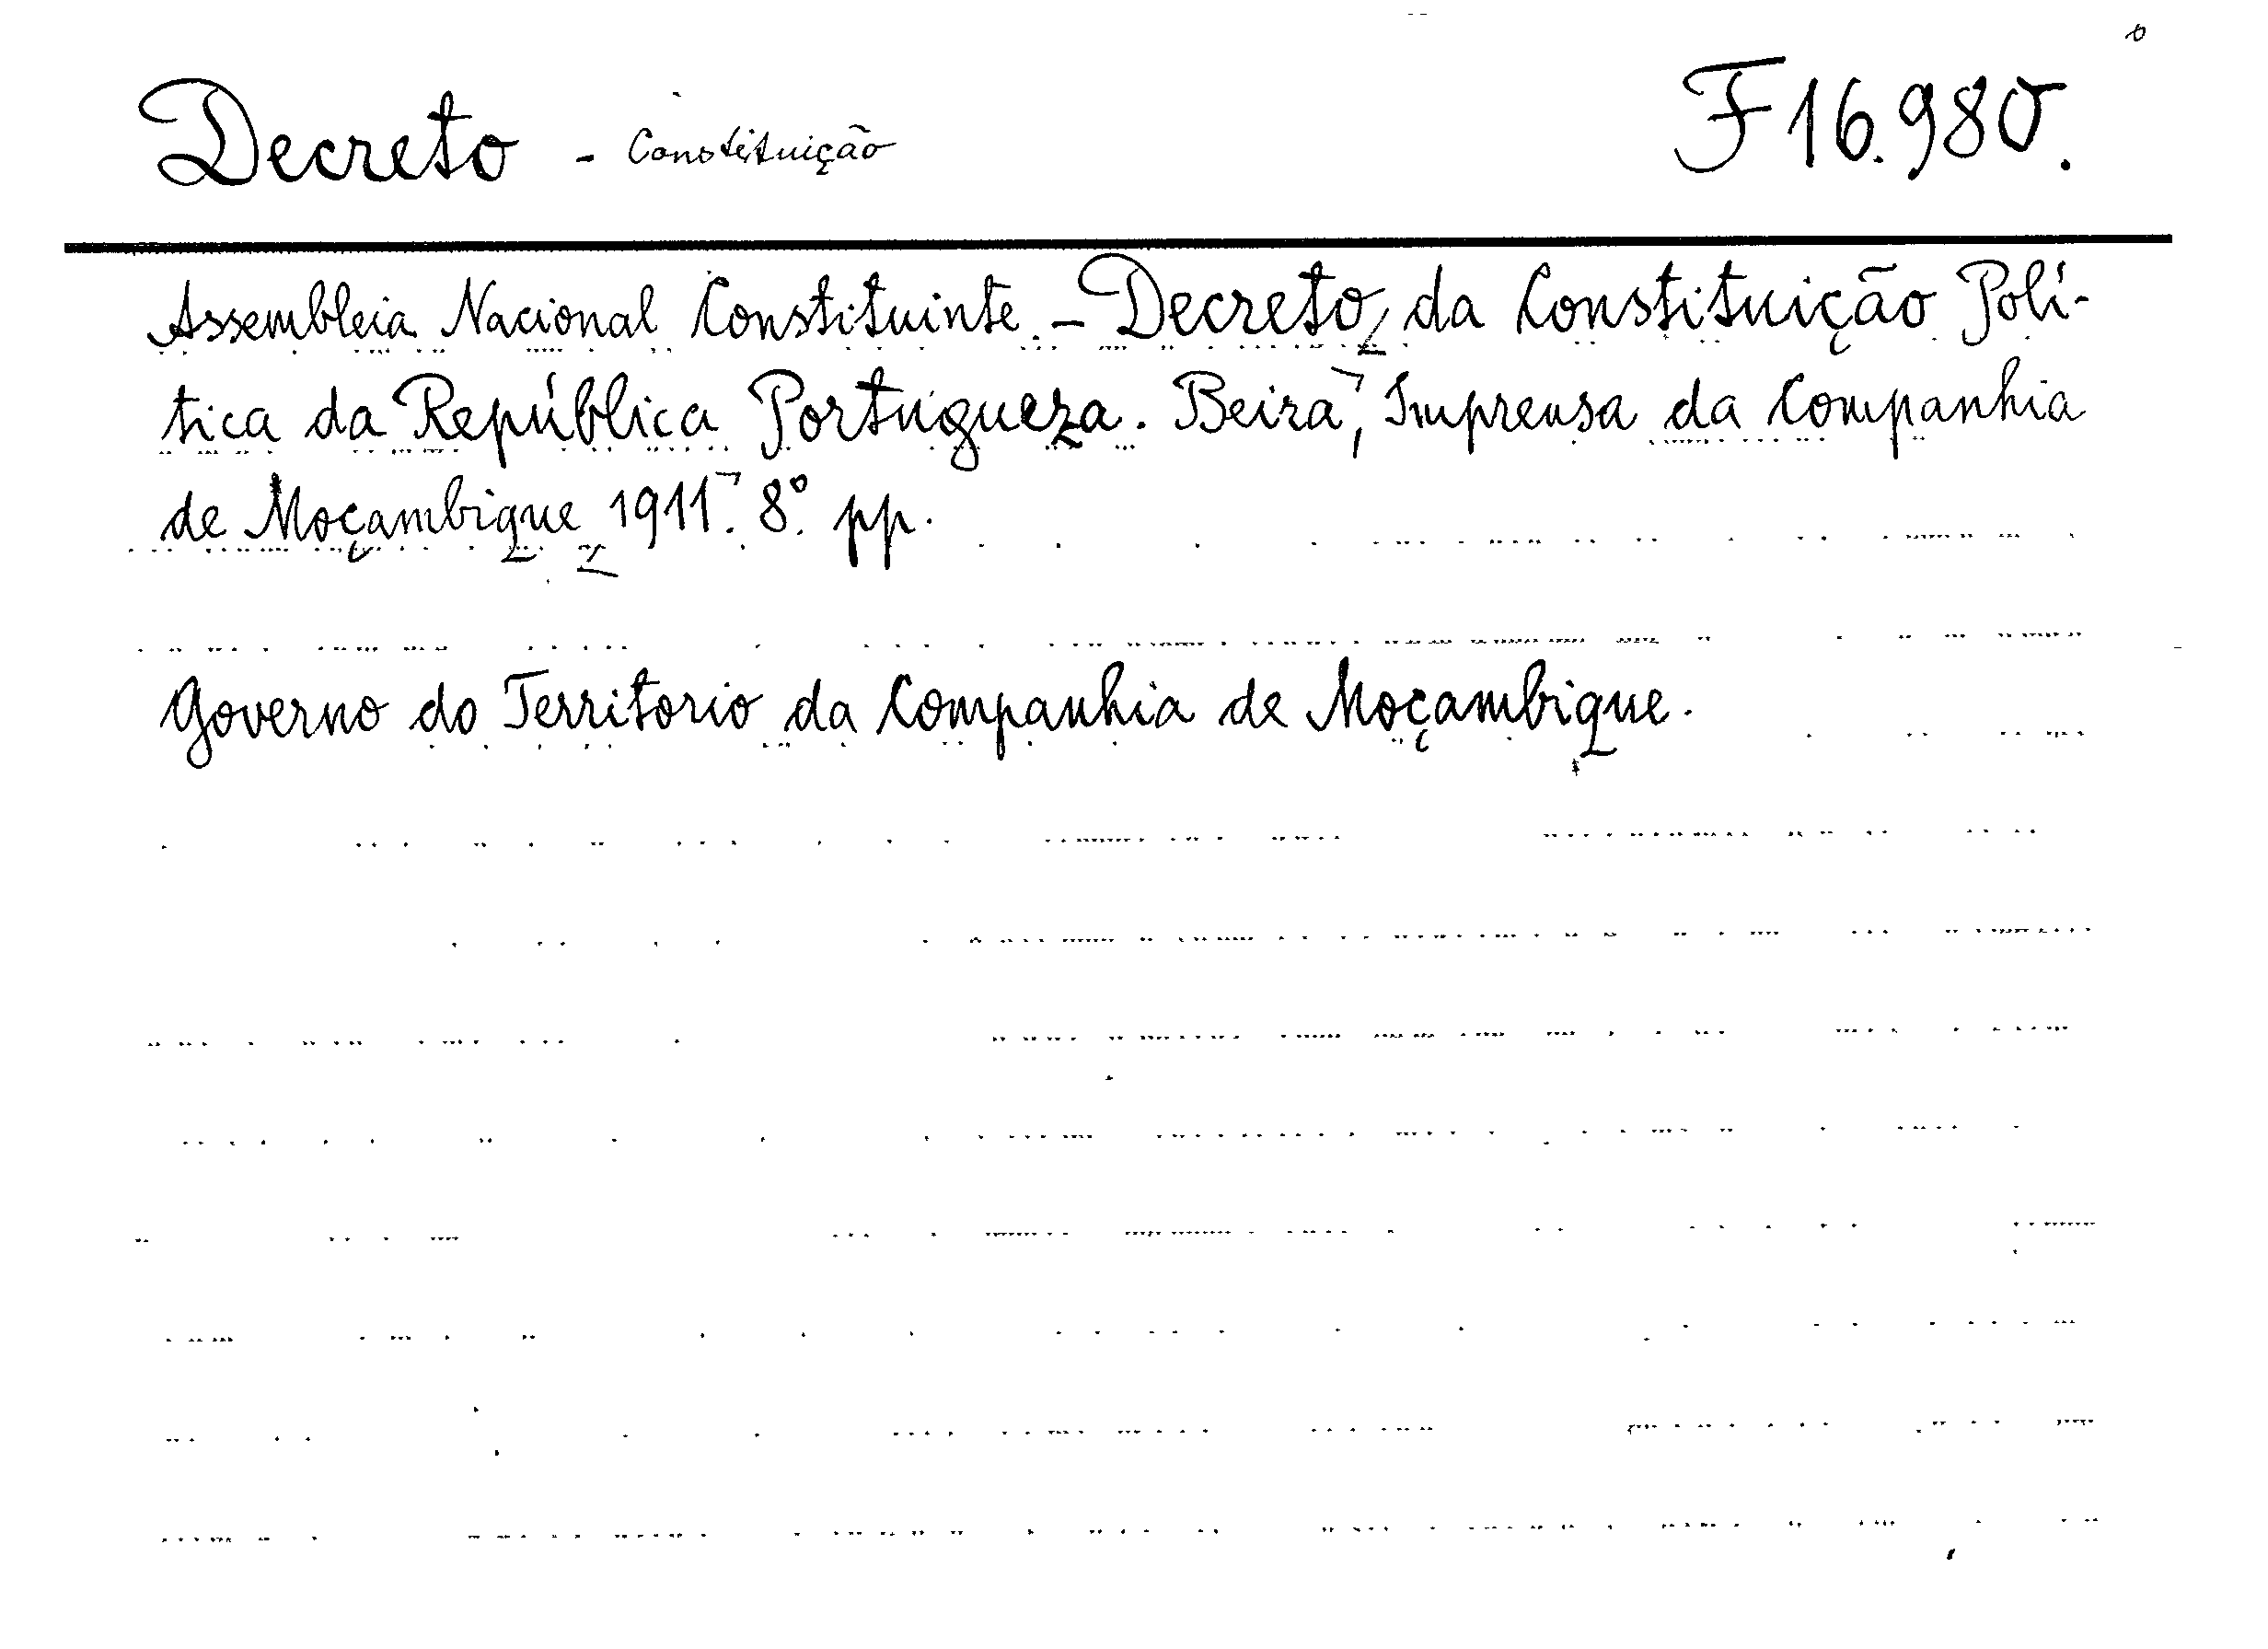 Decreto - Constituição F 16.980.
Assembleia Nacional Constituinte. - Decreto da Constituição Polí-
tica da República Portugueza. Beira, Imprensa da Companhia
de Moçambique 1911. 8.º pp.
Governo do Territorio da Companhia de Moçambique.